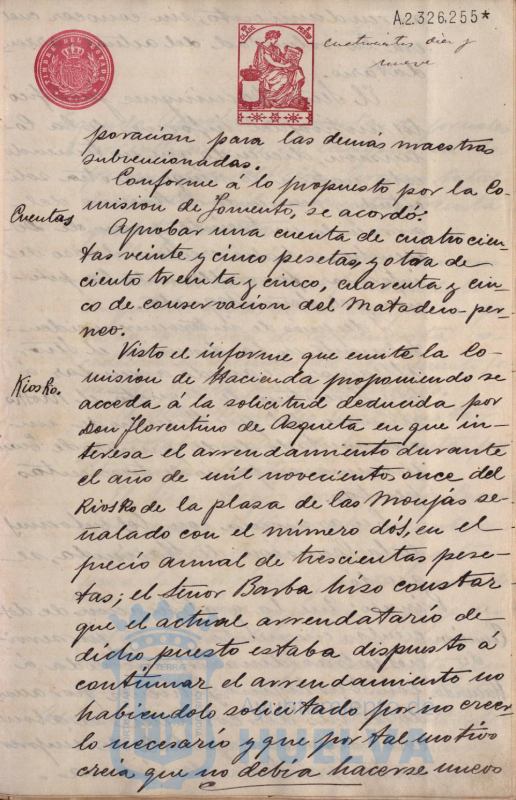 A.2.326.255*
TIMBRE DEL ESTADO
cuatrocientos diez y
nueve
poracion para las demás maestras
subvencionadas.
Conforme á lo propuesto por la Co-
mision de Fomento, se acordó:
Cuentas
Aprobar una cuenta de cuatrocien-
tas veinte y cinco pesetas, y otra de
ciento treinta y cinco, cuarenta y cin-
co de conservacion del Matadero por-
neo.
Visto el informe que emite la Co-
Kiosko.
mision de Hacienda proponiendo se
acceda á la solicitud deducida por
Don Florentino de Azqueta en que in-
teresa el arrendamiento durante
el año de mil noveciento once del
Kiosko de la plaza de las Monjas se-
ñalado con el número dós, en el
precio annal de trescientas pese-
tas; el Señor Barba hiso constar
que el actual arrendatario de
dicho puesto estaba dispuesto á
continuar el arrendamiento no
habiendolo solicitado por no creer-
lo necesario y que por tal motivo
creia que no debía hacerse nuevo
HUELVA